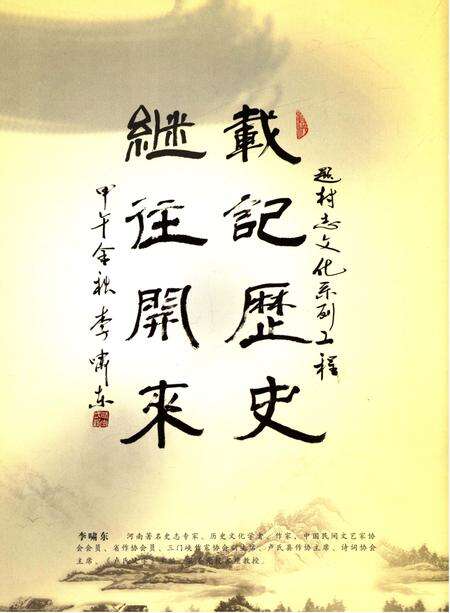 题村志文化系列工程
載記歷史
継往開來
甲午金秋李啸东
李啸东 河南著名史志专家、历史文化学者、作家、中国民间文艺家协
会会员、省作协会员、三门峡作家协会副主席、卢氏县作协主席、诗词协会
主席、
教授。